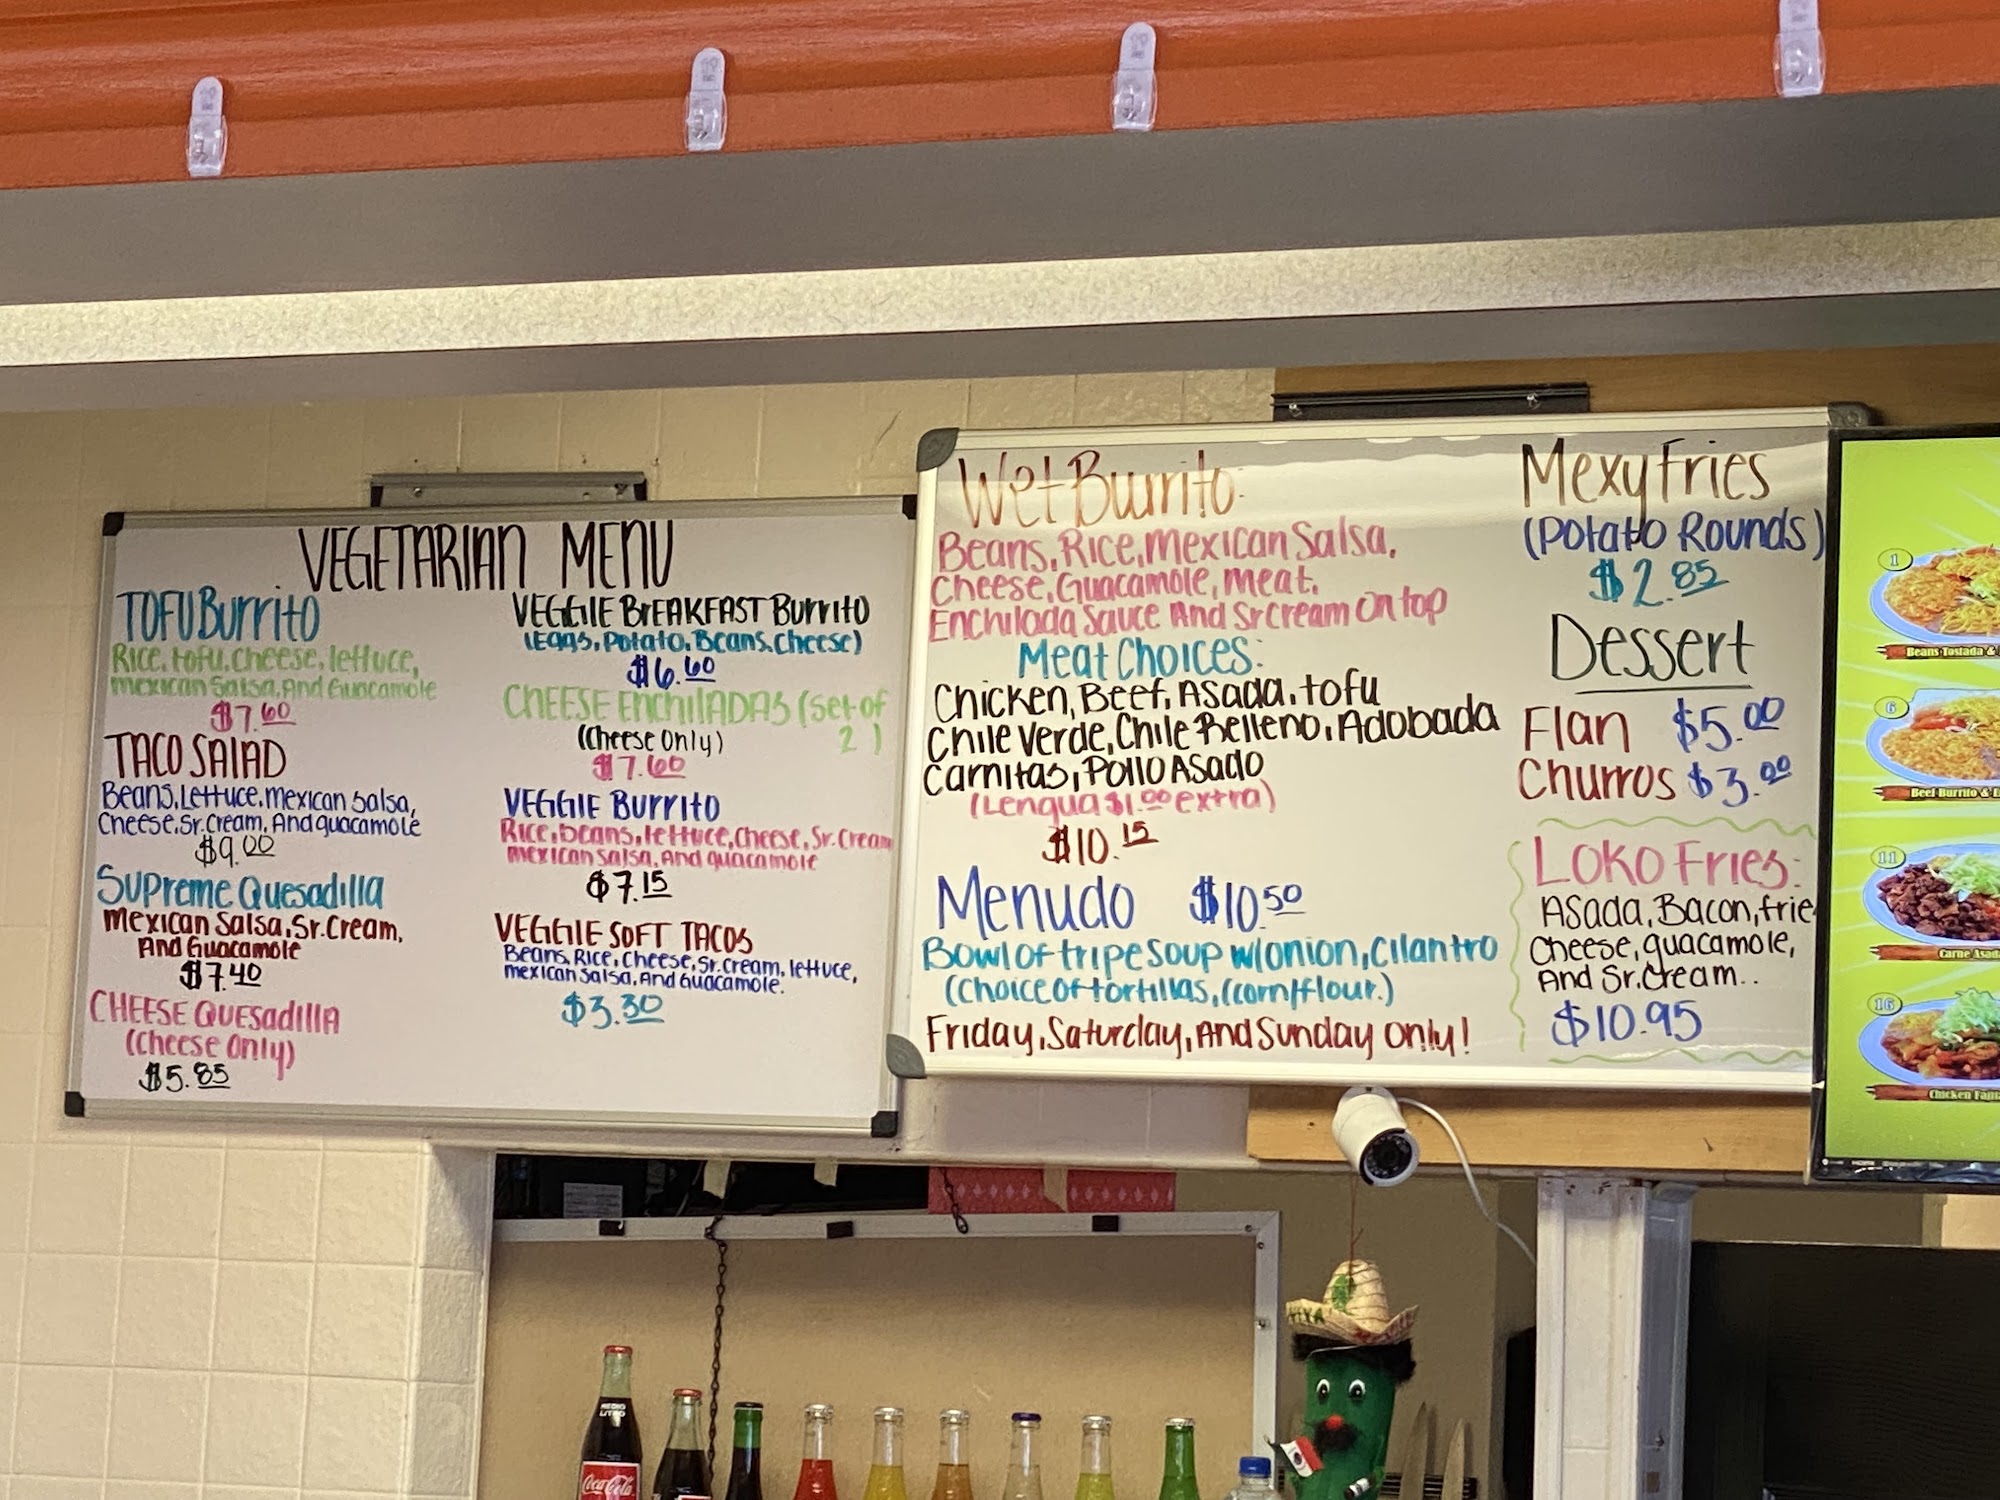 VEGETARIAN MENU
TOFU Burrito
Rice, tofu, cheese, lettuce,
mexican Salsa, And Guacamole
$7.60
TACO SALAD
Beans, Lettuce, mexican Salsa,
Cheese, Sr. Cream, And guacamole
$9.00
Supreme Quesadilla
Mexican Salsa, Sr. Cream,
And Guacamole
$7.40
CHEESE QUESadillA
(Cheese Only)
$5.85
VEGGIE BrEAKFAST Burrito
(Eggs, Potato, Beans, Cheese)
$6.60
CHEESE EnchilADAS (Set of
2)
(Cheese Only)
$7.60
VEGGIE Burrito
Rice, beans, lettuce, Cheese, Sr. Cream
mexican salsa, And guacamole
$7.15
VEGGIE SOFT TACOS
Beans, Rice, Cheese, Sr. Cream, lettuce,
mexican Salsa, And Guacamole.
$3.30
Wet Burrito:
Beans, Rice, Mexican Salsa,
Cheese, Guacamole, meat.
Enchilada Sauce And Sr Cream On top
Meat Choices:
Chicken, Beef, Asada, tofu
Chile Verde, Chile Relleno, Adobada
Carnitas, Pollo Asado
(Lengua $1.00 extra)
$10.15
Menudo $10.50
Bowl of tripe Soup w/onion, cilantro
(Choice of tortillas, (corn/flour.)
Friday, Saturday, And Sunday Only!
Mexy Fries
(Potato Rounds)
$2.85
Dessert
Flan $5.00
Churros $3.00
LOKO Fries:
Asada, Bacon, frie
Cheese, guacamole,
And Sr. Cream..
$10.95
1
Beans Tostada &
6
Beef Burrito &
11
Carne Asad
16
Chicken Faji
MEDIO
LITRO
Coca-Cola